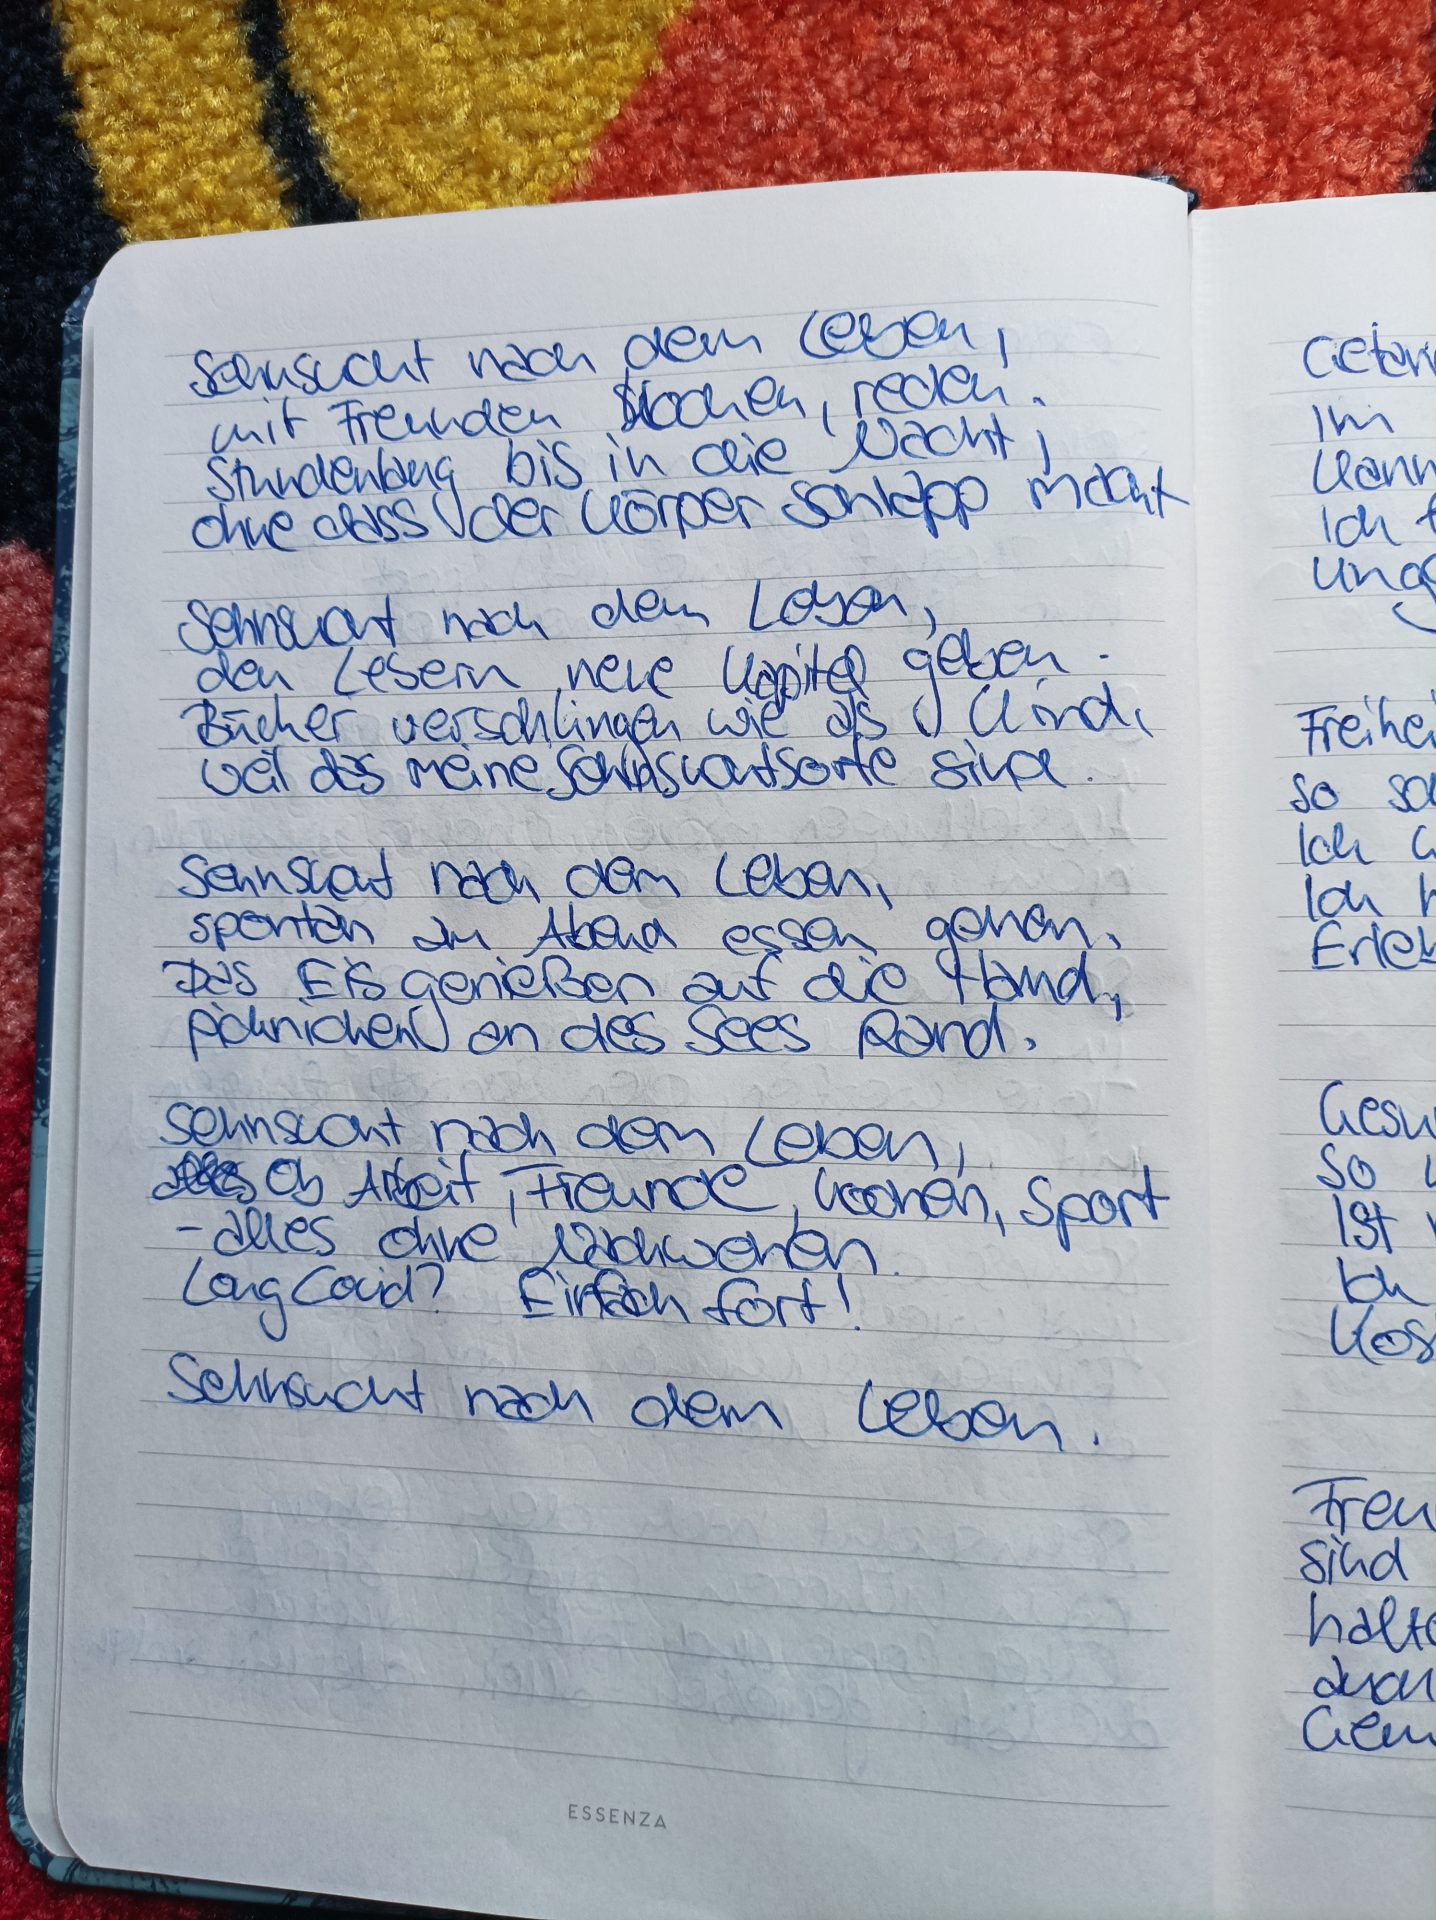 Sehnsucht nach dem Leben,
mit Freunden kochen, reden.
Stundenlang bis in die Nacht,
ohne dass der Körper schlapp macht
Sehnsucht nach dem Leben,
den Lesern neue Kapitel geben.
Bücher verschlingen wie als Kind,
weil das meine Sehnsuchtsorte sind.
Sehnsucht nach dem Leben,
spontan am Abend essen gehen.
Das Eis genießen auf die Hand,
picknicken an des Sees Rand.
Sehnsucht nach dem Leben,
ob Arbeit, Freunde, kochen, Sport
- alles ohne Nachwehen.
Long Covid? Einfach fort!
Sehnsucht nach dem Leben.
ESSENZA
Im
Ich
so
Ich
Ich
so
Ist
Ich
sind